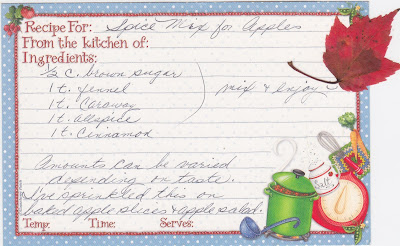 Recipe For: Spice Mix for Apples
From the kitchen of:
Ingredients:
1/2 c. brown sugar
1 t. fennel
1 t. Caraway
1 t. allspice
1 t. Cinnamon
mix & enjoy
Amounts can be varied
depending on taste.
I've sprinkled this on
baked apple slices & apple salad.
Temp: Time: Serves:
Salt